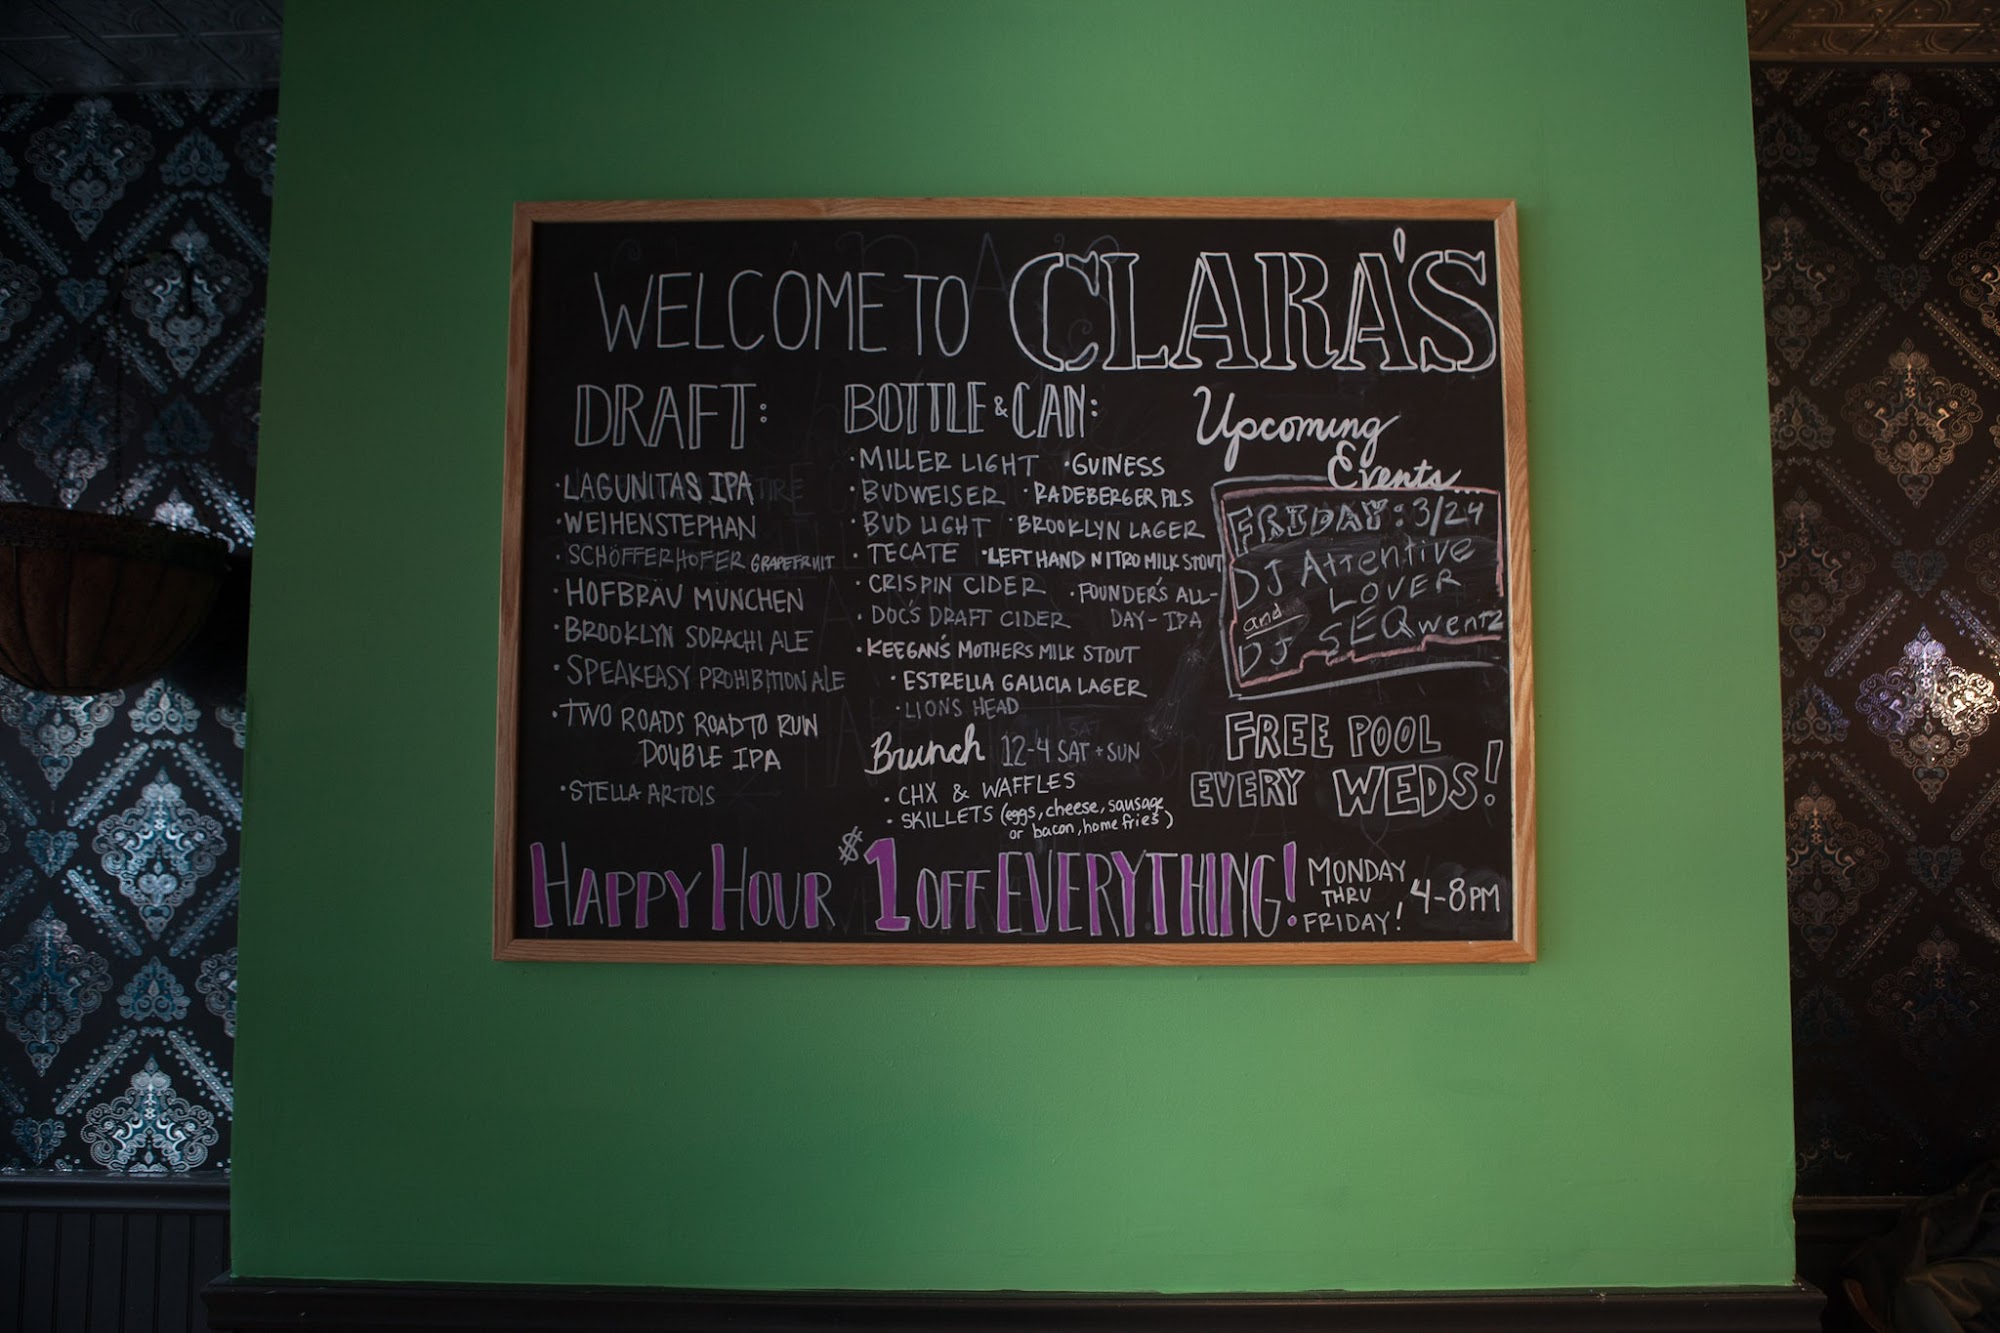 WELCOME TO CLARA'S
DRAFT:
· LAGUNITAS IPA
· WEIHENSTEPHAN
· SCHÖFFERHOFER GRAPEFRUIT
· HOFBRÄU MÜNCHEN
· BROOKLYN SORACHI ALE
· SPEAKEASY PROHIBITION ALE
· TWO ROADS ROAD TO RUIN
DOUBLE IPA
· STELLA ARTOIS
BOTTLE & CAN:
· MILLER LIGHT · GUINESS
· BUDWEISER · RADEBERGER PILS
· BUD LIGHT · BROOKLYN LAGER
· TECATE · LEFT HAND NITRO MILK STOUT
· CRISPIN CIDER · FOUNDER'S ALL-
· DOC'S DRAFT CIDER DAY-IPA
· KEEGAN'S MOTHERS MILK STOUT
· ESTRELLA GALICIA LAGER
· LIONS HEAD
Brunch 12-4 SAT + SUN
· CHX & WAFFLES
· SKILLETS (eggs, cheese, sausage
or bacon, home fries)
Upcoming
Events...
FRIDAY: 3/24
DJ Attentive
LOVER
and
DJ SEQwentz
FREE POOL
EVERY WEDS!
HAPPY HOUR $1 OFF EVERYTHING!
MONDAY
THRU
FRIDAY!
4-8PM